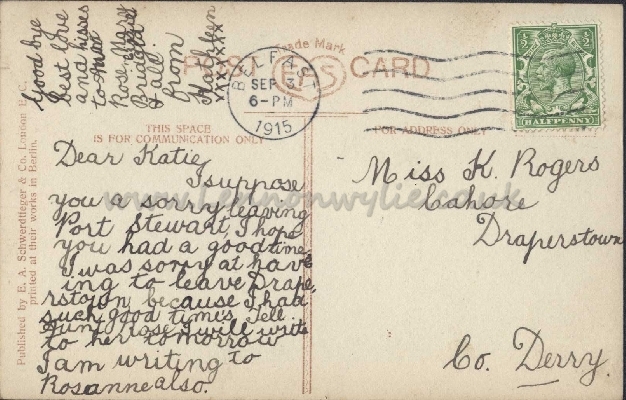 Good bye
Best love
and kisses
to
Rose Mary
Brigid
& all.
from
Kathleen
xxxxxxx
Trade Mark
POST CARD
EAS
BELFAST
SEP 3
6-PM
1915
HALFPENNY
THIS SPACE
IS FOR COMMUNICATION ONLY
FOR ADDRESS ONLY
Dear Katie
I suppose
you a sorry leaving
Port Stewart, I hope
you had a good time
I was sorry at hav
ing to leave Drape,
rstown because I had
such good times. Tell
Aunt Rose I will write
to her tomorrow
I am writing to
Roseanne also.
Miss K. Rogers
Cahore
Draperstown
Co. Derry.
Published by E. A. Schwerdtfeger & Co. London E.C.
printed at their works in Berlin.
www.lennonwylie.co.uk